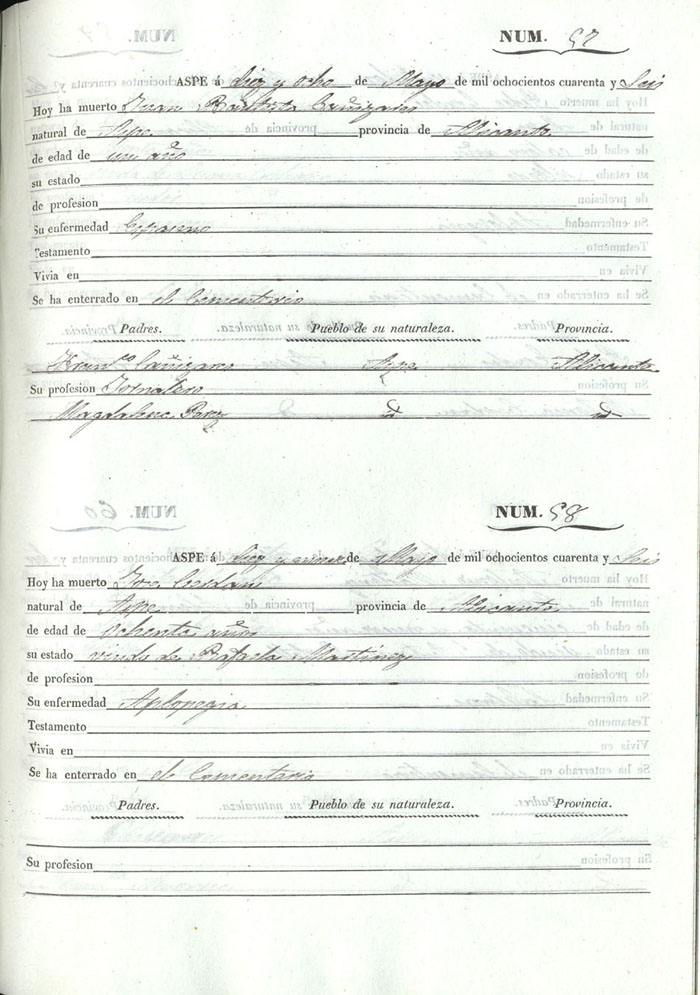 NUM. 57
ASPE á diez y ocho de Mayo de mil ochocientos cuarenta y Seis
Hoy ha muerto Juan Bautista Cañizares
natural de Aspe provincia de Alicante
de edad de un año
su estado
de profesion
Su enfermedad
Testamento
Vivia en
Se ha enterrado en el Cementerio
Padres. Pueblo de su naturaleza. Provincia.
Franco Cañizares Aspe Alicante
Su profesion Jornalero
Magdalena Perez id id
NUM. 58
ASPE á diez y de Mayo de mil ochocientos cuarenta y Seis
Hoy ha muerto Cerdan
natural de Aspe provincia de Alicante
de edad de ochenta años
su estado viudo de Rafaela Martinez
de profesion
Su enfermedad Aplopegia
Testamento
Vivia en
Se ha enterrado en el Cementerio
Padres. Pueblo de su naturaleza. Provincia.
Su profesion